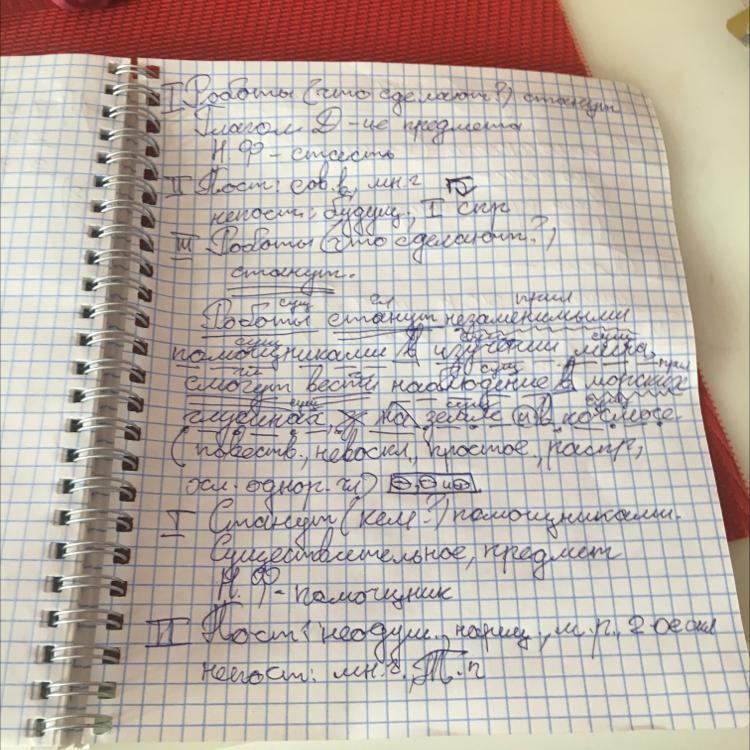 I Роботы (что сделают?) станут
Глагол. Д-ие предмета
Н.Ф - стать
II Пост: сов.в, мн.ч
непост: будущ., I спр
III Роботы (что сделают?)
станут.
сущ гл прил
Роботы станут незаменимыми
сущ сущ сущ
помощниками в изучении мира,
гл гл сущ прил
смогут вести наблюдение в морских
сущ сущ сущ
глубинах, на земле и в космосе.
(повеств., невоскл, простое, распр,
осл. однор. гл)
I Станут (кем?) помощниками.
Существительное, предмет
Н.Ф - помощник
II Пост: неодуш., нариц., м.р., 2-ое скл
непост: мн.ч. Т.п